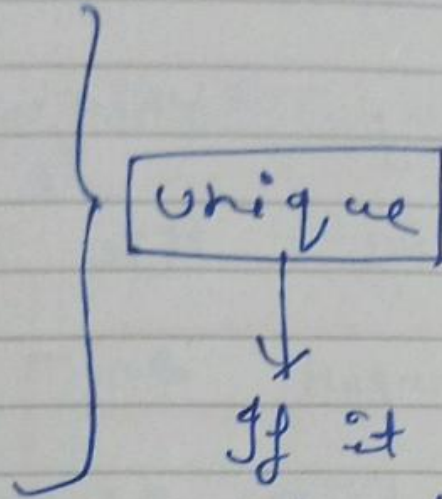 unique
If it